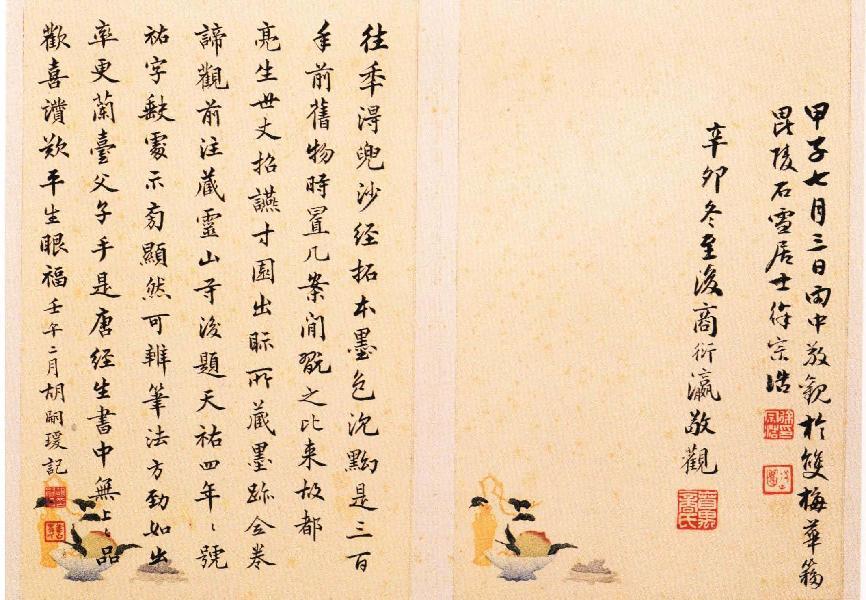 甲子七月三日雨中敬觀於雙梅華簃
毘陵石雪居士徐宗浩
辛卯冬至後商衍瀛敬觀
往年得兜沙經拓本墨色沉黝是三百
年前舊物時置几案間翫之比來故都
亮生世丈招讌寸園出眎所藏墨跡全卷
諦觀前注藏靈山寺後題天祐四年〻號
祐字缺處示旁顯然可辨筆法方勁如出
率更蘭臺父子手是唐經生書中無上〻品
歡喜讚歎平生眼福壬午二月胡嗣瑗記